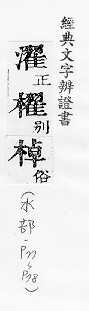 經典文字辨證書
濯正櫂別棹俗
(水部